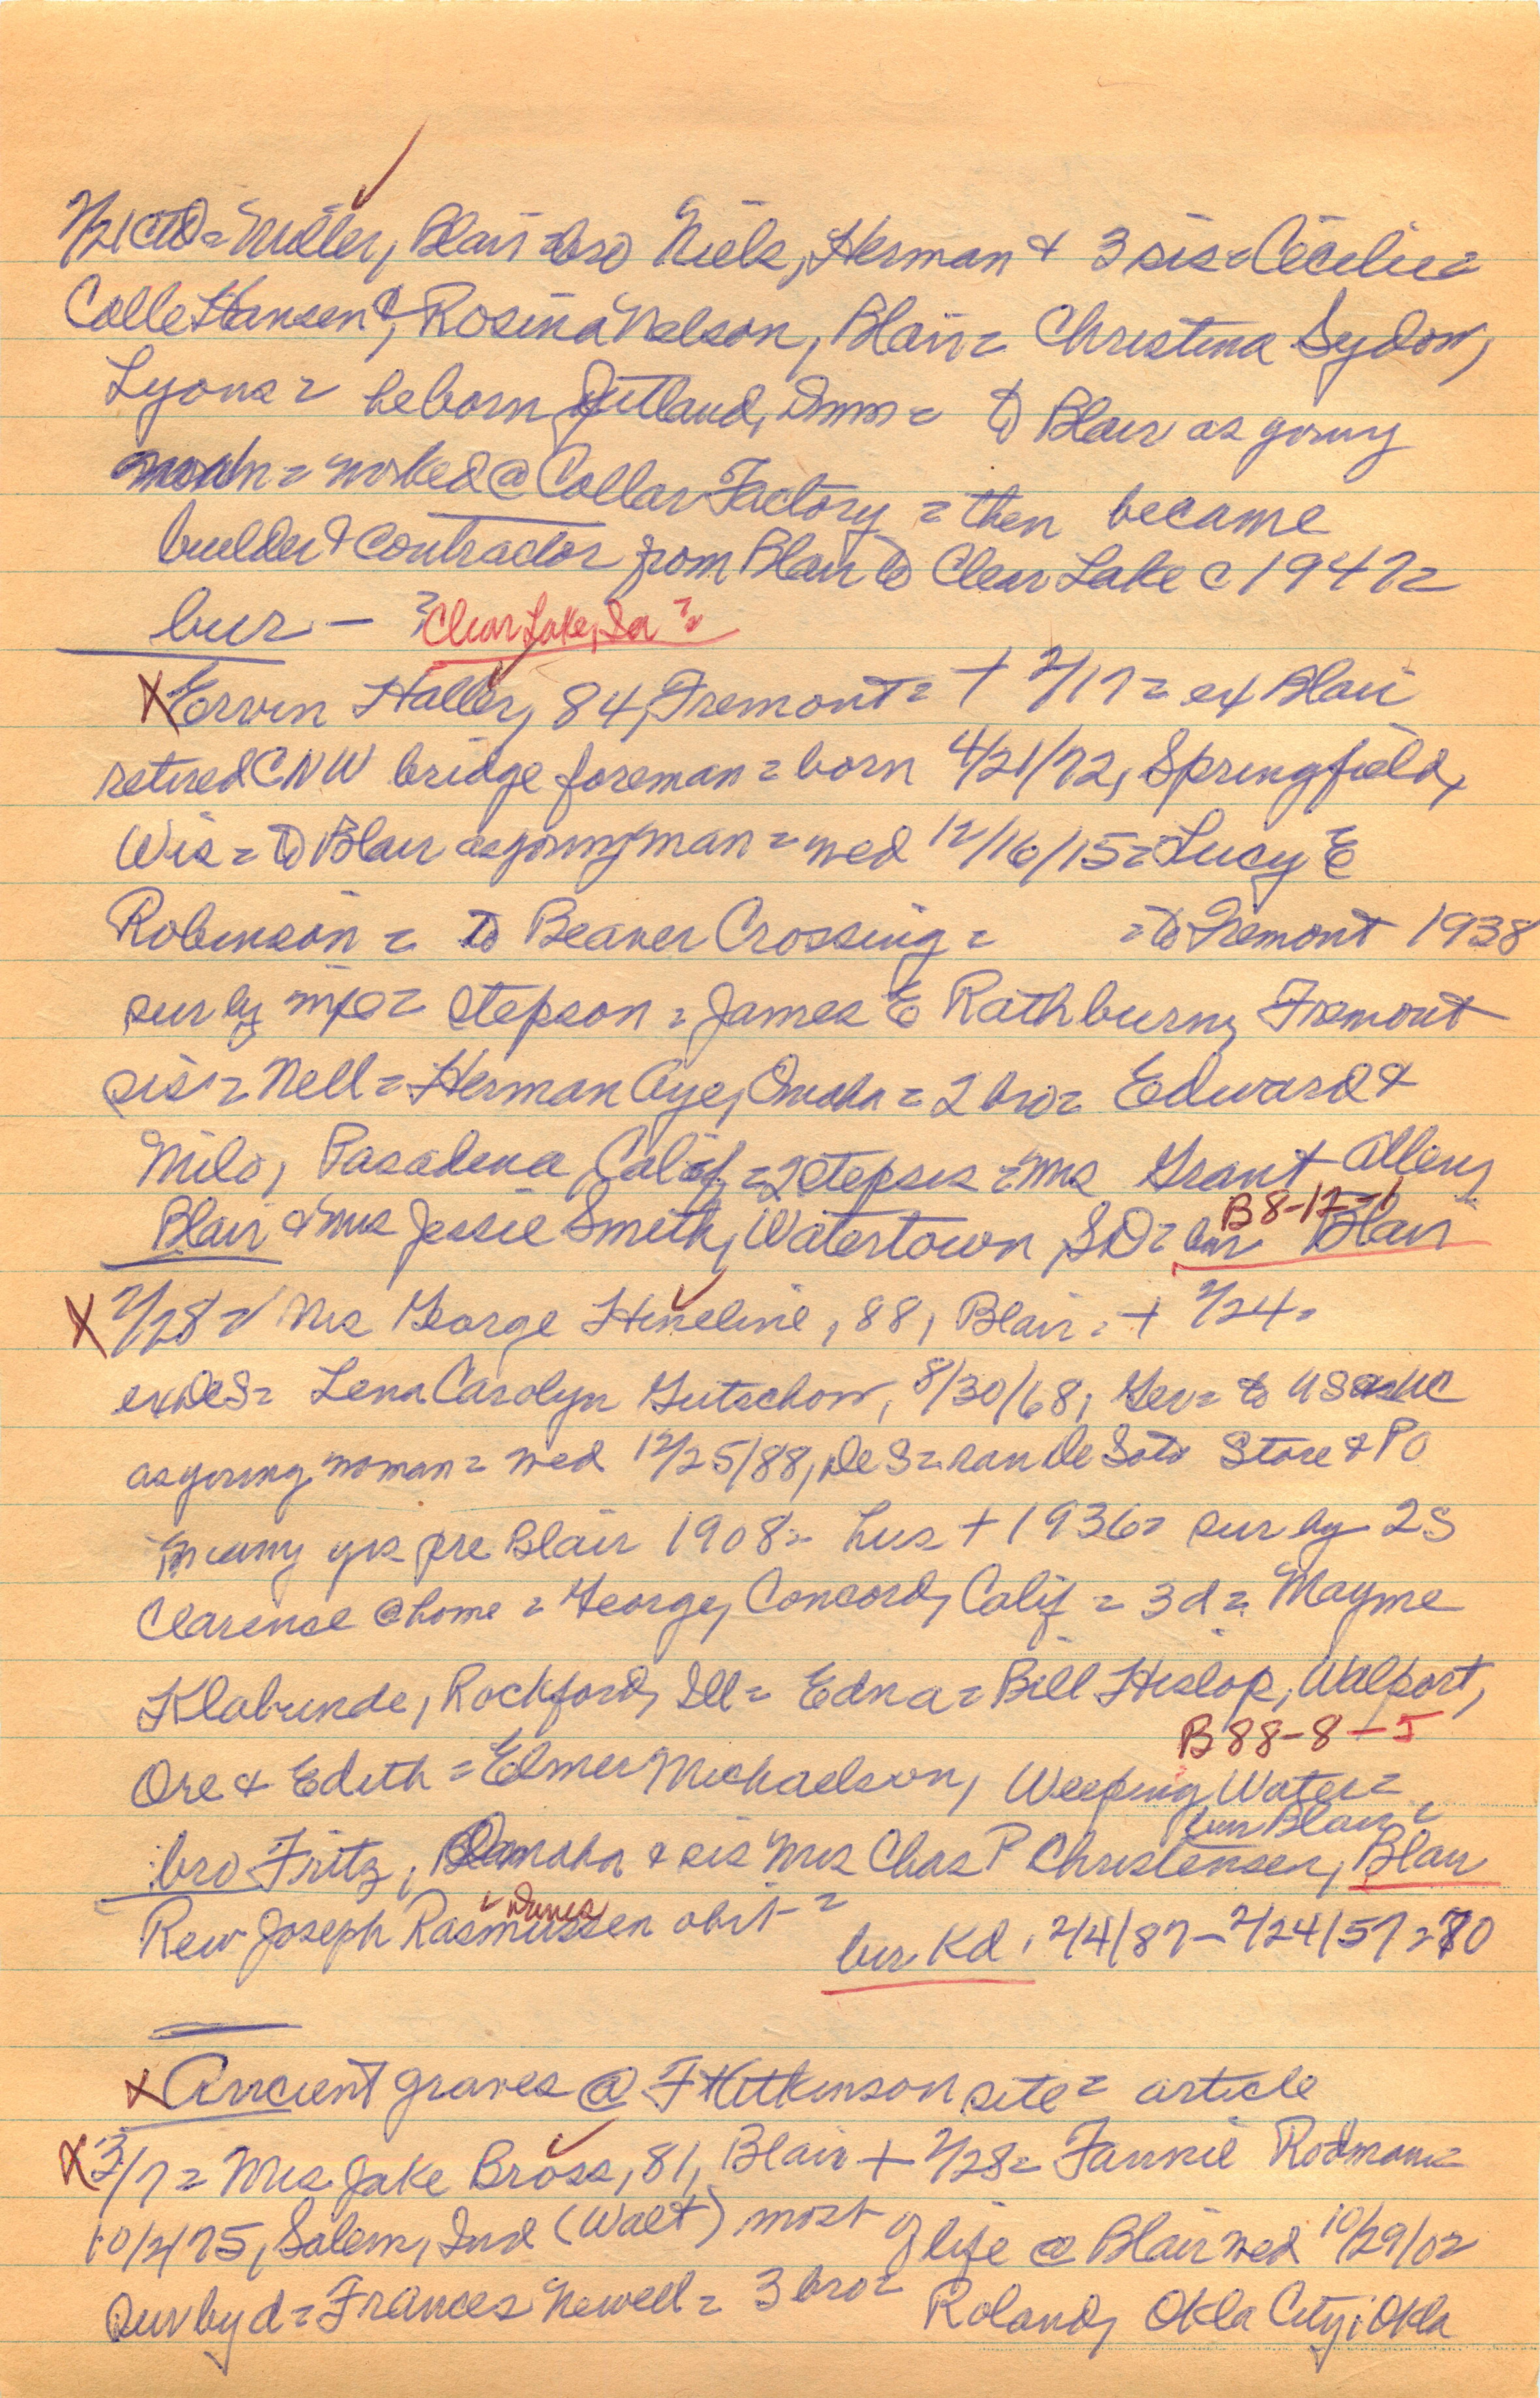 2/21 ctd = Miller, Blair = bro Niels, Herman & 3 sis = Cecilie =
Calle Hansen &, Rosina Nelson, Blair = Christina Sydow,
Lyons = he born Jutland, Dmm = to Blair as young
man = worked @ Collar Factory = then became
builder & contractor from Blair to Clear Lake c 1947 =
bur - ? Clear Lake, Ia ?
X Ervin Haller, 84, Fremont = + 2/17 = ex Blair
retired CNW bridge foreman = born 4/21/72, Springfield,
Wis = to Blair as young man = wed 12/16/15 = Lucy E
Robinson = to Beaver Crossing = = to Fremont 1938
sur by wife = stepson = James E Rathburn, Fremont
sis = Nell = Herman Aye, Omaha = 2 bro = Edward &
Milo, Pasadena, Calif = 2 stepsis = Mrs Grant Allen,
B8-12-1
Blair & Mrs Jessie Smith, Watertown, SD = bur Blair
X 2/28 = Mrs George Hineline, 88, Blair = + 2/24 =
ex DeS = Lena Carolyn Gutschow, 8/30/68, Ger = to US
as young woman = wed 12/25/88, DeS = ran De Soto Store & PO
many yrs pre Blair 1908 = hus + 1936 = sur by 2 S
Clarence @ home = George, Concord, Calif = 3 d = Mayme
Klabunde, Rockford, Ill = Edna = Bill Hislop, Walport,
B 88-8-5
Ore & Edith = Elmer Michaelson, Weeping Water =
bur Blair =
bro Fritz, Omaha & sis Mrs Chas P Christensen, Blair
Danes
Rev Joseph Rasmussen obit =
bur Kd, 2/4/87 - 2/24/57 = 70
X Ancient graves @ F Hitkinson site = article
X 3/7 = Mrs Jake Bross, 81, Blair + 2/28 = Fannie Rodman =
10/2/75, Salem, Ind (Walt) most of life @ Blair wed 10/29/02
Sur by d = Frances Newell = 3 bro = Roland, Okla City, Okla